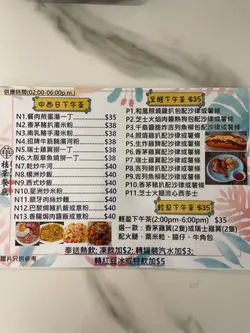 供應時間(02:00-06:00p.m.)
中西日下午茶
N1.餐肉煎蛋湯一丁 $38
N2.香茅豬扒湯米粉 $38
N3.南乳豬手湯米粉 $40
N4.招牌牛筋腩湯河粉 $40
N5.瑞士雞翼撈一丁 $40
N6.大阪章魚燒撈一丁 $40
N7.乾炒牛河 $40
N8.楊州炒飯 $40
N9.西式炒飯 $40
N10.星洲炒米 $40
N11.銀牙肉絲炒麵 $40
N12.巴黎焗豬扒飯或意粉 $40
N13.香腸焗肉醬飯或意粉 $40
至醒下午茶 $35
P1.和風照燒雞扒包配沙律或薯條
P2.芝士火焰肉醬熱狗包配沙律或薯條
P3.千島醬龍炸吉列魚柳包配沙律或薯條
P4.吉列豬扒包配沙律或薯條
P5.生炸雞髀配沙律或薯條
P6.瑞士雞翼配沙律或薯條
P7.香茅雞翼配沙律或薯條
P10.香茅豬扒配沙律或薯條
P11.芝士火腿奄列配西多士
輕盈下午茶 $35
輕盈下午茶(2:00pm-6:00pm) $35
選一款：香茅雞翼(2隻)或瑞士雞翼(2隻)
配火腿、粟米粒、腸仔、牛角包
圖片只供參考
奉送熱飲; 凍飲加$2; 轉罐裝汽水加$3;
轉紅豆冰或特飲加$5